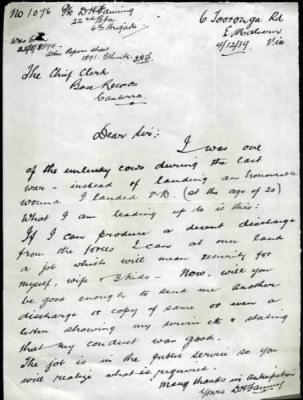 No 1076 Pte D H Fanning
22nd Btn
6th Brigade
6 Tooronga Rd
E. Malvern
4/12/39 Vic
was
other papers show
1891.
The Chief Clerk
Base Records
Canberra
Dear Sir:
I was one
of the unlucky cows during the last
war - instead of landing an honourable
wound I landed T.B. (at the age of 20)
What I am leading up to is this:
If I can produce a decent discharge
from the forces I can at once land
a job which will mean security for
myself, wife & 3 kids - Now, will you
be good enough to send me another
discharge or copy of same or even a
letter showing my service etc & stating
that my conduct was good.
The job is in the public service so you
will realize what is required.
Many thanks in anticipation
Yours D H Fanning